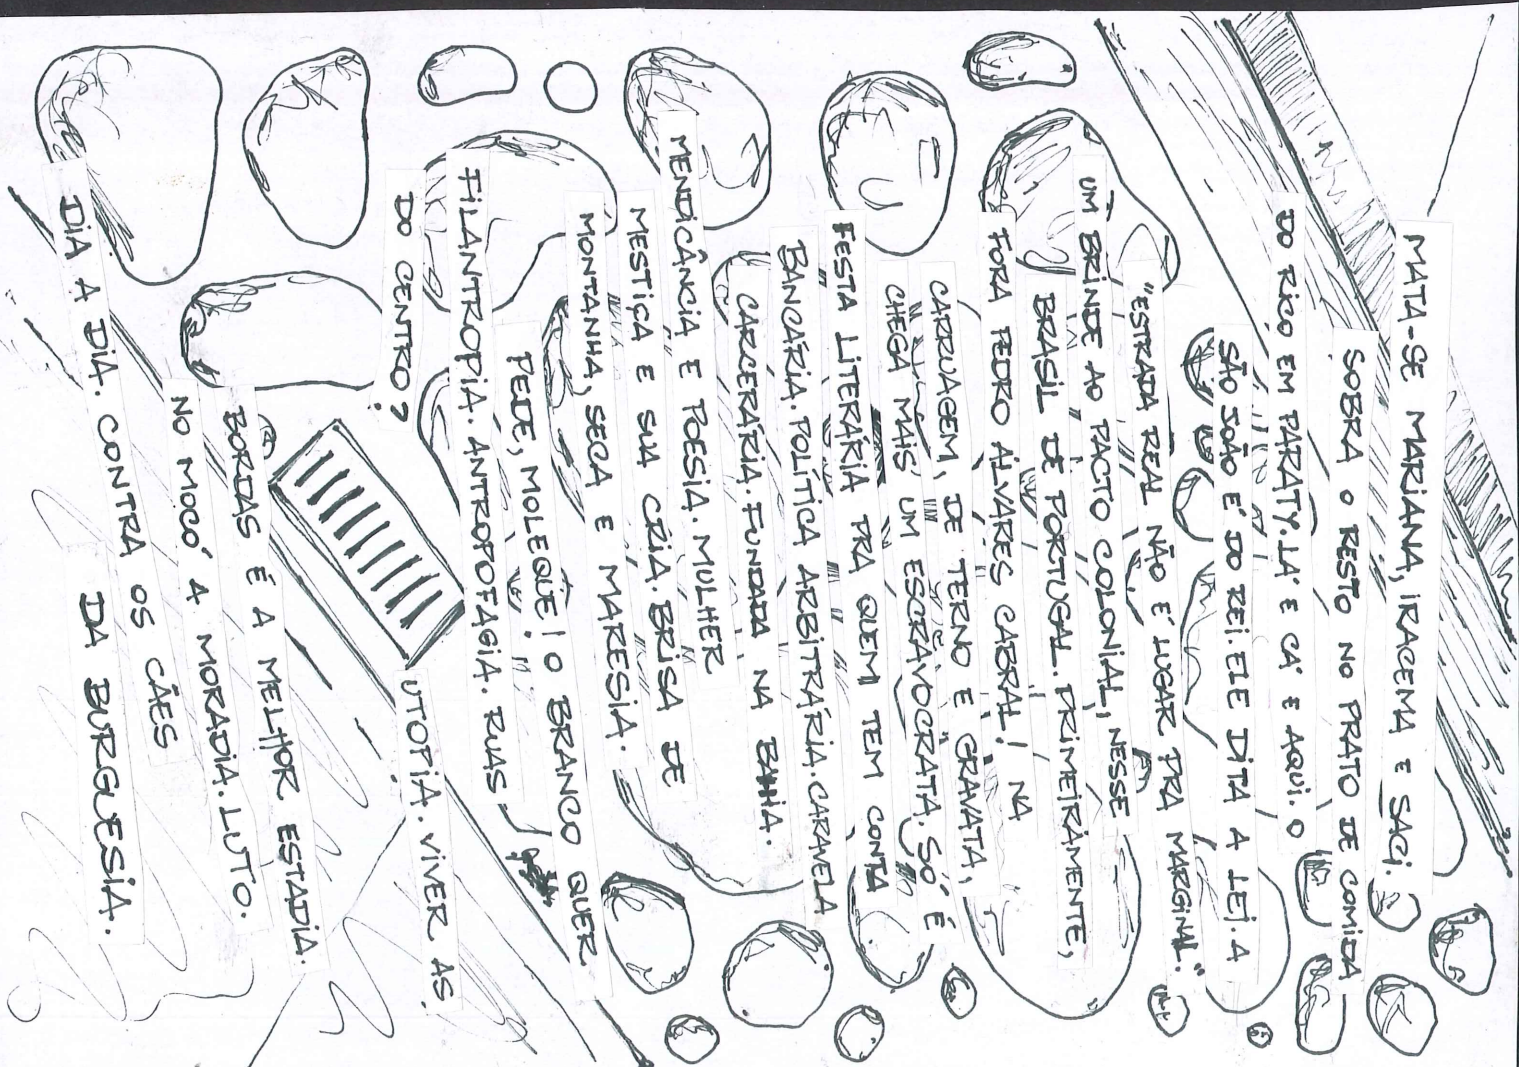 MATA-SE MARIANA, IRACEMA E SACI.
SOBRA O RESTO NO PRATO DE COMIDA
DO RICO EM PARATY. LÁ E CÁ E AQUI. O
SÃO JOÃO É DO REI: ELE DITA A LEI. A
"ESTRADA REAL NÃO É LUGAR PRA MARGINAL".
UM BRINDE AO PACTO COLONIAL, NESSE
BRASIL DE PORTUGAL. PRIMEIRAMENTE,
FORA PEDRO ÁLVARES CABRAL! NA
CARRUAGEM, DE TERNO E GRAVATA,
CHEGA MAIS UM ESCRAVOCRATA. SÓ É
FESTA LITERÁRIA PRA QUEM TEM CONTA
BANCÁRIA. POLÍTICA ARBITRÁRIA. CARAVELA
CARCERÁRIA. FUNDADA NA BAHIA.
MENDICÂNCIA E POESIA. MULHER
MESTIÇA E SUA CRIA. BRISA DE
MONTANHA, SECA E MARESIA.
PEDE, MOLEQUE! O BRANCO QUER
FILANTROPIA. ANTROPOFAGIA. RUAS
DO CENTRO?
UTOPIA. VIVER AS
BORDAS É A MELHOR ESTADIA.
NO MOCÓ A MORADIA. LUTO.
DIA A DIA. CONTRA OS CÃES
DA BURGUESIA.